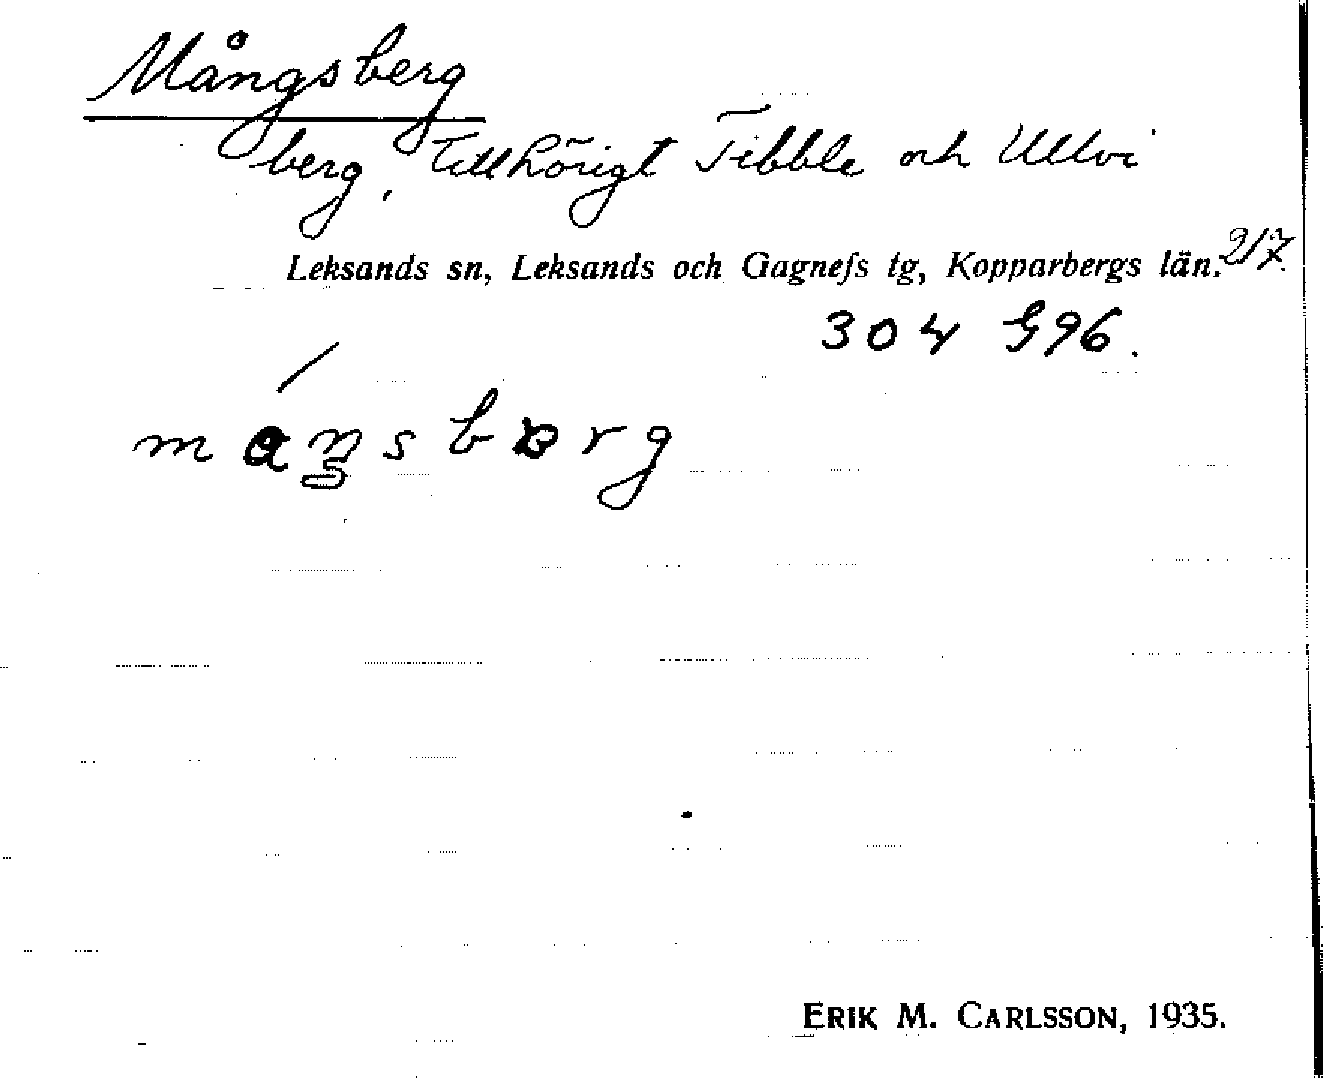 Mångsberg
berg, tillhörigt Tibble och Ullvi
Leksands sn, Leksands och Gagnefs tg, Kopparbergs län. 2/7.
304 G96.
ERIK M. CARLSSON, 1935.